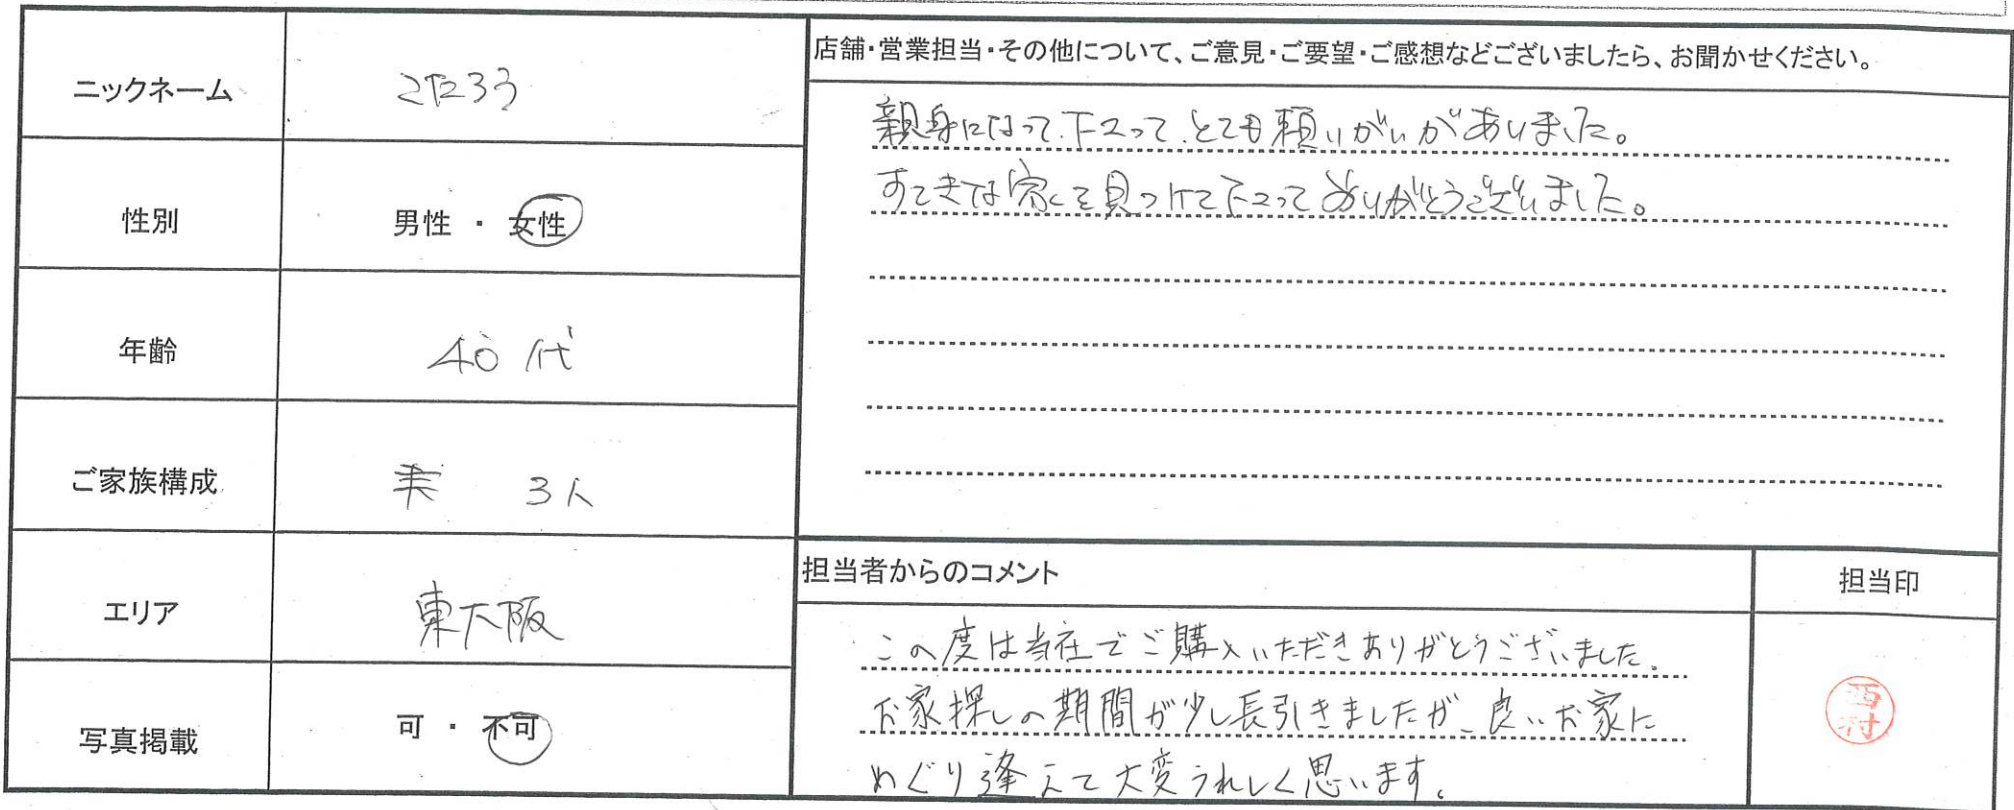 ニックネーム
こたろう
性別
男性 ・ 女性
年齢
40代
ご家族構成
3人
エリア
東大阪
写真掲載
可 ・ 不可
店舗・営業担当・その他について、ご意見・ご要望・ご感想などございましたら、お聞かせください。
親身になって下さって、とても頼りがいがありました。
すてきな家を見つけて下さってありがとうございました。
担当者からのコメント
この度は当社でご購入いただきありがとうございました。
お家探しの期間が少し長引きましたが、良いお家に
めぐり逢えて大変うれしく思います。
担当印
西村